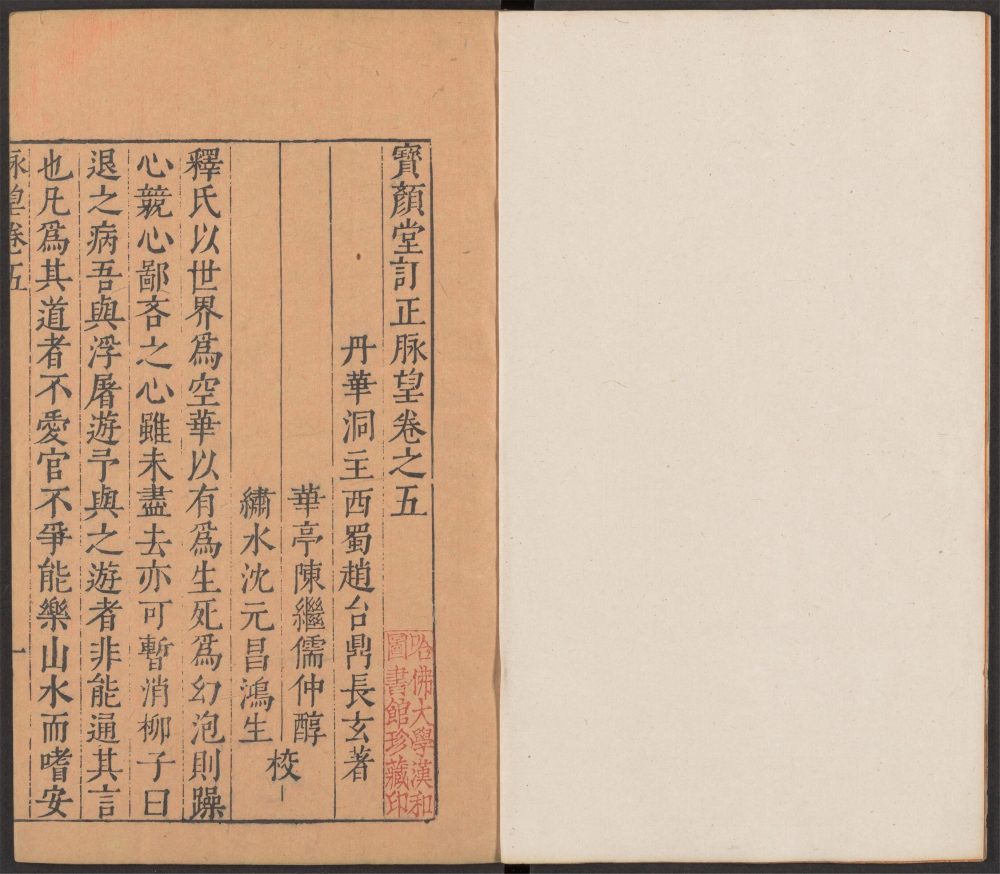 寳顏堂訂正脉望卷之五
丹華洞主西蜀趙台鼎長玄著
華亭陳繼儒仲醇
繡水沈元昌鴻生
校
釋氏以世界爲空華以有爲生死爲幻泡則躁
心競心鄙吝之心雖未盡去亦可暫消柳子曰
退之病吾與浮屠遊予與之遊者非能通其言
也凡爲其道者不愛官不爭能樂山水而嗜安
脉望卷五
一
哈佛大學漢和
圖書館珍藏印